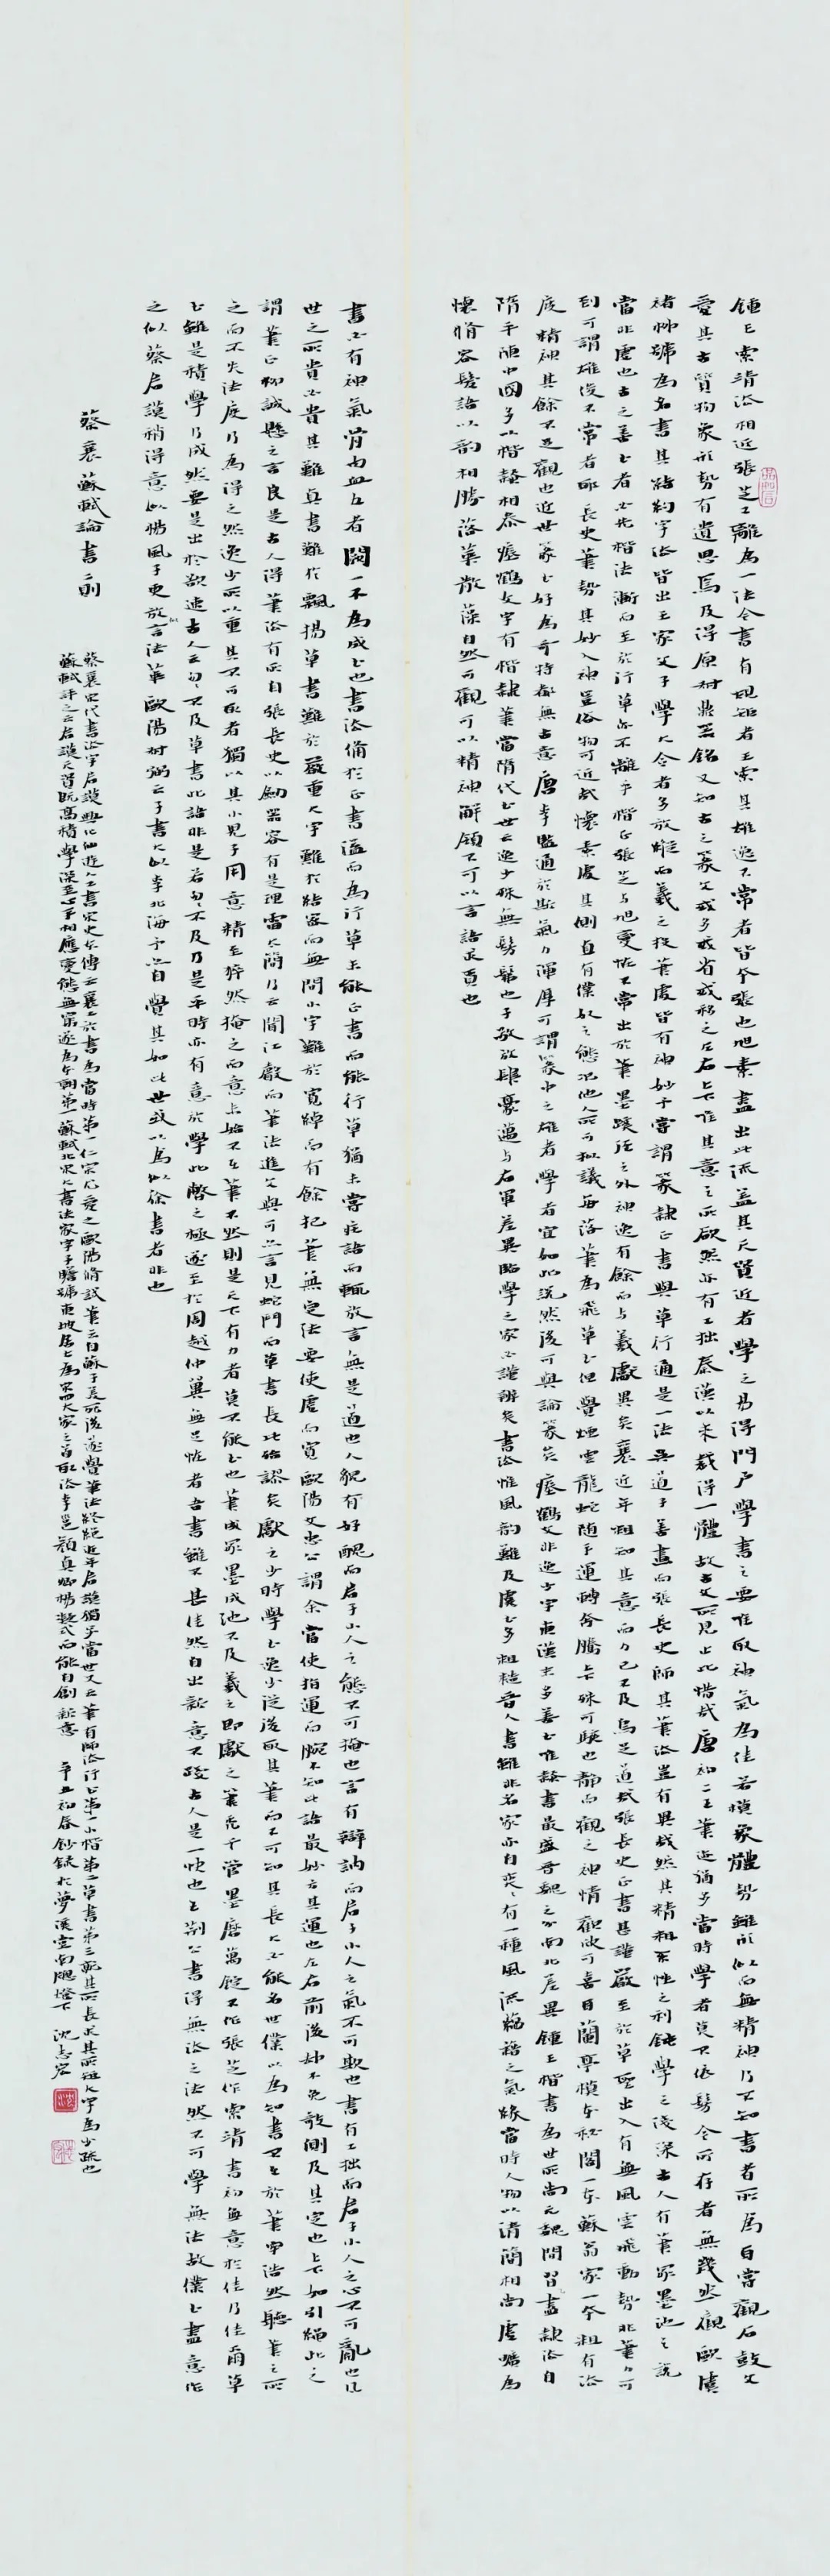 鍾王索靖法相近張芝又離為一法今書有規矩者王索其雄逸不常者皆本張也旭素盡出此流蓋其天質近者學之易得門戶學書之要唯取神氣為佳若模象體勢雖形似而無精神乃不知書者所為耳嘗觀石鼓文
愛其古質物象形勢有遺思焉及得原叔鼎器銘又知古之篆文或多或省或移之左右上下唯其意之所欲然亦有工拙秦漢以來裁得一體故古文所見止此惜哉唐初二王筆迹猶多當時學者莫不依倣今所存者無幾然觀歐虞
褚柳號為名書其結約字法皆出王家父子學大令者多放縱而羲之投筆處皆有神妙予嘗謂篆隸正書與草行通是一法吳道子善畫而張長史師其筆法豈有異哉然其精粗系性之利鈍學之淺深古人有筆冢墨池之說
當非虛也古之善書者必先楷法漸而至於行草亦不離乎楷正張芝與旭變怪不常出於筆墨蹊徑之外神逸有餘而與羲獻異矣襄近年粗知其意而力已不及烏足道哉張長史正書甚謹嚴至於草聖出入有無風雲飛動勢非筆力可
到可謂雄俊不常者耶長史筆勢其妙入神豈俗物可近哉懷素處其側直有僕奴之態況他人所可擬議每落筆為飛草書但覺煙雲龍蛇隨手運轉奔騰上下殊可駭也靜而觀之神情歡欣可喜耳蘭亭模本秘閣一本蘇翁家一本粗有法
度精神其餘不足觀也近世篆書好為奇特都無古意唐李監通於斯氣力渾厚可謂篆中之雄者學者宜如此說然後可與論篆矣瘞鶴文非逸少字東漢末多善書唯隸書最盛晉魏之分南北差異鍾王楷書為世所尚元魏間習盡隸法自
隋平陳中國多以楷隸相參瘞鶴文字有楷隸筆當隋代書世云逸少殊無髣髴也子敬放肆豪邁與右軍差異臨學之家必謹辨矣書法惟風韻難及虞書多粗糙晉人書雖非名家亦自奕奕有一種風流蘊藉之氣緣當時人物以清簡相尚虛曠為
懷脩容發語以韻相勝落華散藻自然可觀可以精神解領不可以言語求覓也
書必有神氣骨肉血五者闕一不為成書也書法備於正書溢而為行草未能正書而能行草猶未嘗莊語而輒放言無是道也人貌有好醜而君子小人之態不可掩也言有辯訥而君子小人之氣不可欺也書有工拙而君子小人之心不可亂也凡
世之所貴必貴其難真書難於飄揚草書難於嚴重大字難於結密而無間小字難於寬綽而有餘把筆無定法要使虛而寬歐陽文忠公謂余當使指運而腕不知此語最妙方其運也左右前後卻不免欹側及其定也上下如引繩此之
謂筆正柳誠懸之言良是古人得筆法有所自張長史以劍器容有是理雷太簡乃云聞江聲而筆法進文與可亦言見蛇鬥而草書長此殆謬矣獻之少時學書逸少從後取其筆而不可知其長大必能名世僕以為知書不在於筆牢浩然聽筆之所
之而不失法度乃為得之然逸少所以重其不可取者獨以其小兒子用意精至猝然掩之而意未始不在筆不然則是天下有力者莫不能書也筆成冢墨成池不及羲之即獻之筆禿千管墨磨萬鋌不作張芝作索靖書初無意於佳乃佳爾草
書雖是積學乃成然要是出於欲速古人云匆匆不及草書此語非是若匆匆不及乃是平時亦有意於學此弊之極遂至於周越仲翼無足怪者吾書雖不甚佳然自出新意不踐古人是一快也王荊公書得無法之法然不可學無法故僕書盡意作
之似蔡君謨稍得意似楊風子更放似言法華歐陽叔弼云子書大似李北海予亦自覺其如此世或以為似徐書者非也
蔡襄蘇軾論書二則
蔡襄宋代書法字君謨興化仙遊人工書宋史本傳云襄工於書為當時第一仁宗尤愛之歐陽脩試筆云自蘇子美死後遂覺筆法終絕近年君謨獨步當世又云筆有師法行書第一小楷第二草書第三就其所長求其所短大字為少疏也
蘇軾評之云君謨天資既高積學深至心手相應變態無窮遂為本朝第一蘇軾北宋大書法家字子瞻號東坡居士為宋四大家之首取法李邕顏真卿楊凝式而能自創新意 辛丑初春鈔錄於夢溪室南牕燈下 沈志宏